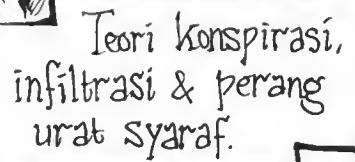 Teori konspirasi,
infiltrasi & perang
urat syaraf.